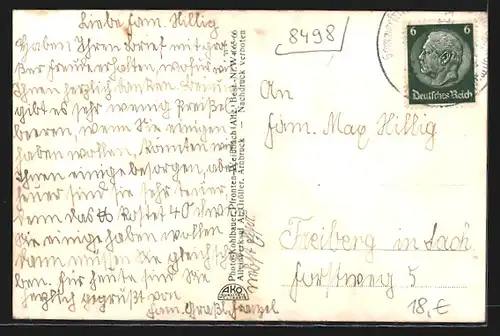 Liebe Fam. Hillig
Haben Ihren Brief mit gro-
ßer Freude erhalten, wofür wir
Ihnen herzlich danken. Heuer
gibt es sehr wenig Preißel
beeren, wenn Sie einigen
haben wollen, könnten wir
Ihnen einige besorgen, aber
heuer sind sie sehr teuer
denn das ℔ kostet 40 d wen
Sie einige haben wollen
dann müssen Sie gleich schrei-
ben. Für heute sind Sie
herzlich gegrüßt von
Fam. Graßl, Franzel
Photo Kohlbauer, Pfronten-Weißbach/Allg. Best.-Nr. W 466-66
Alleinverkauf Arzt Höller, Arnbruck — Nachdruck verboten
AKO
8498
6 6
Deutsches Reich
An
Fam. Max Hillig
Freiberg in Sach
Forstweg 5
18,€